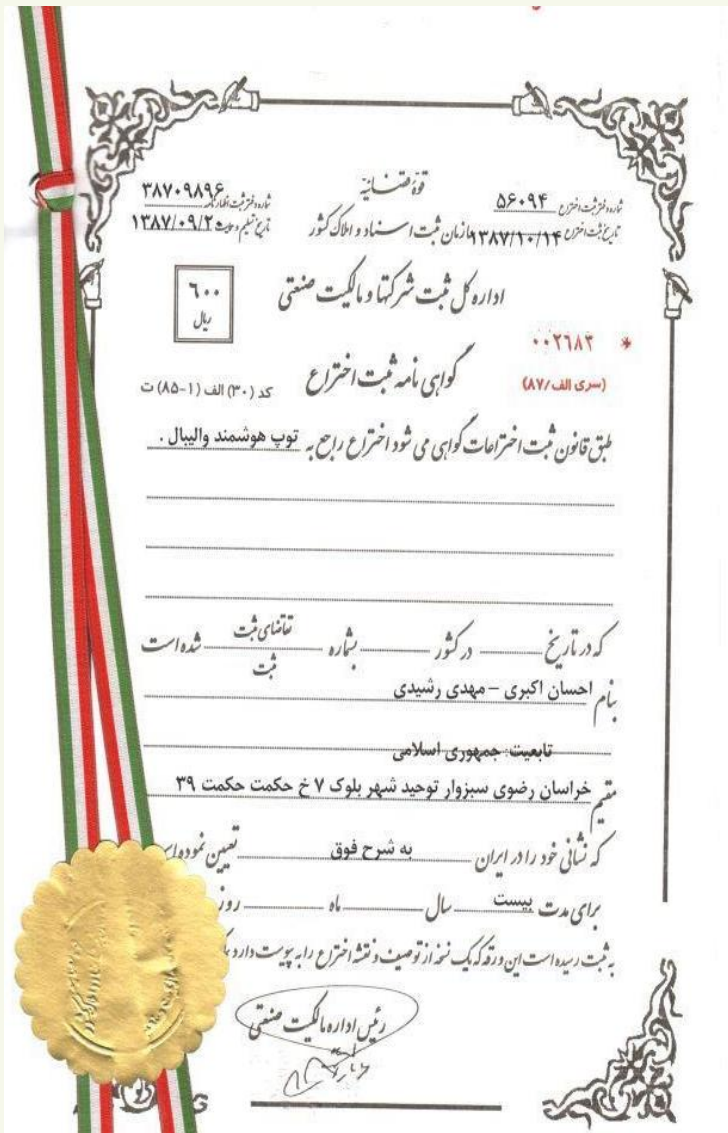 قوه قضائیه
شماره دفتر ثبت اختراع ۵۶۰۹۴
تاریخ ثبت اختراع ۱۳۸۷/۱۰/۱۴
شماره دفتر ثبت اظهارنامه ۳۸۷۰۹۸۹۶
تاریخ تسلیم و ثبت ۱۳۸۷/۰۹/۲
سازمان ثبت اسناد و املاک کشور
اداره کل ثبت شرکتها و مالکیت صنعتی
۶۰۰
ریال
* ۰۰۲۶۸۳
(سری الف/۸۷)
گواهی نامه ثبت اختراع
کد (۳۰) الف (۱-۸۵) ت
طبق قانون ثبت اختراعات گواهی می شود اختراع راجع به توپ هوشمند والیبال .
که در تاریخ در کشور بشماره تقاضای ثبت شده است
ثبت
بنام احسان اکبری – مهدی رشیدی
تابعیت: جمهوری اسلامی
مقیم خراسان رضوی سبزوار توحید شهر بلوک ۷ خ حکمت حکمت ۳۹
که نشانی خود را در ایران به شرح فوق تعیین نموده
برای مدت بیست سال ماه روز
به ثبت رسیده است این ورقه که یک نسخه از توصیف و نقشه اختراع را به پیوست دارد
رئیس اداره مالکیت صنعتی